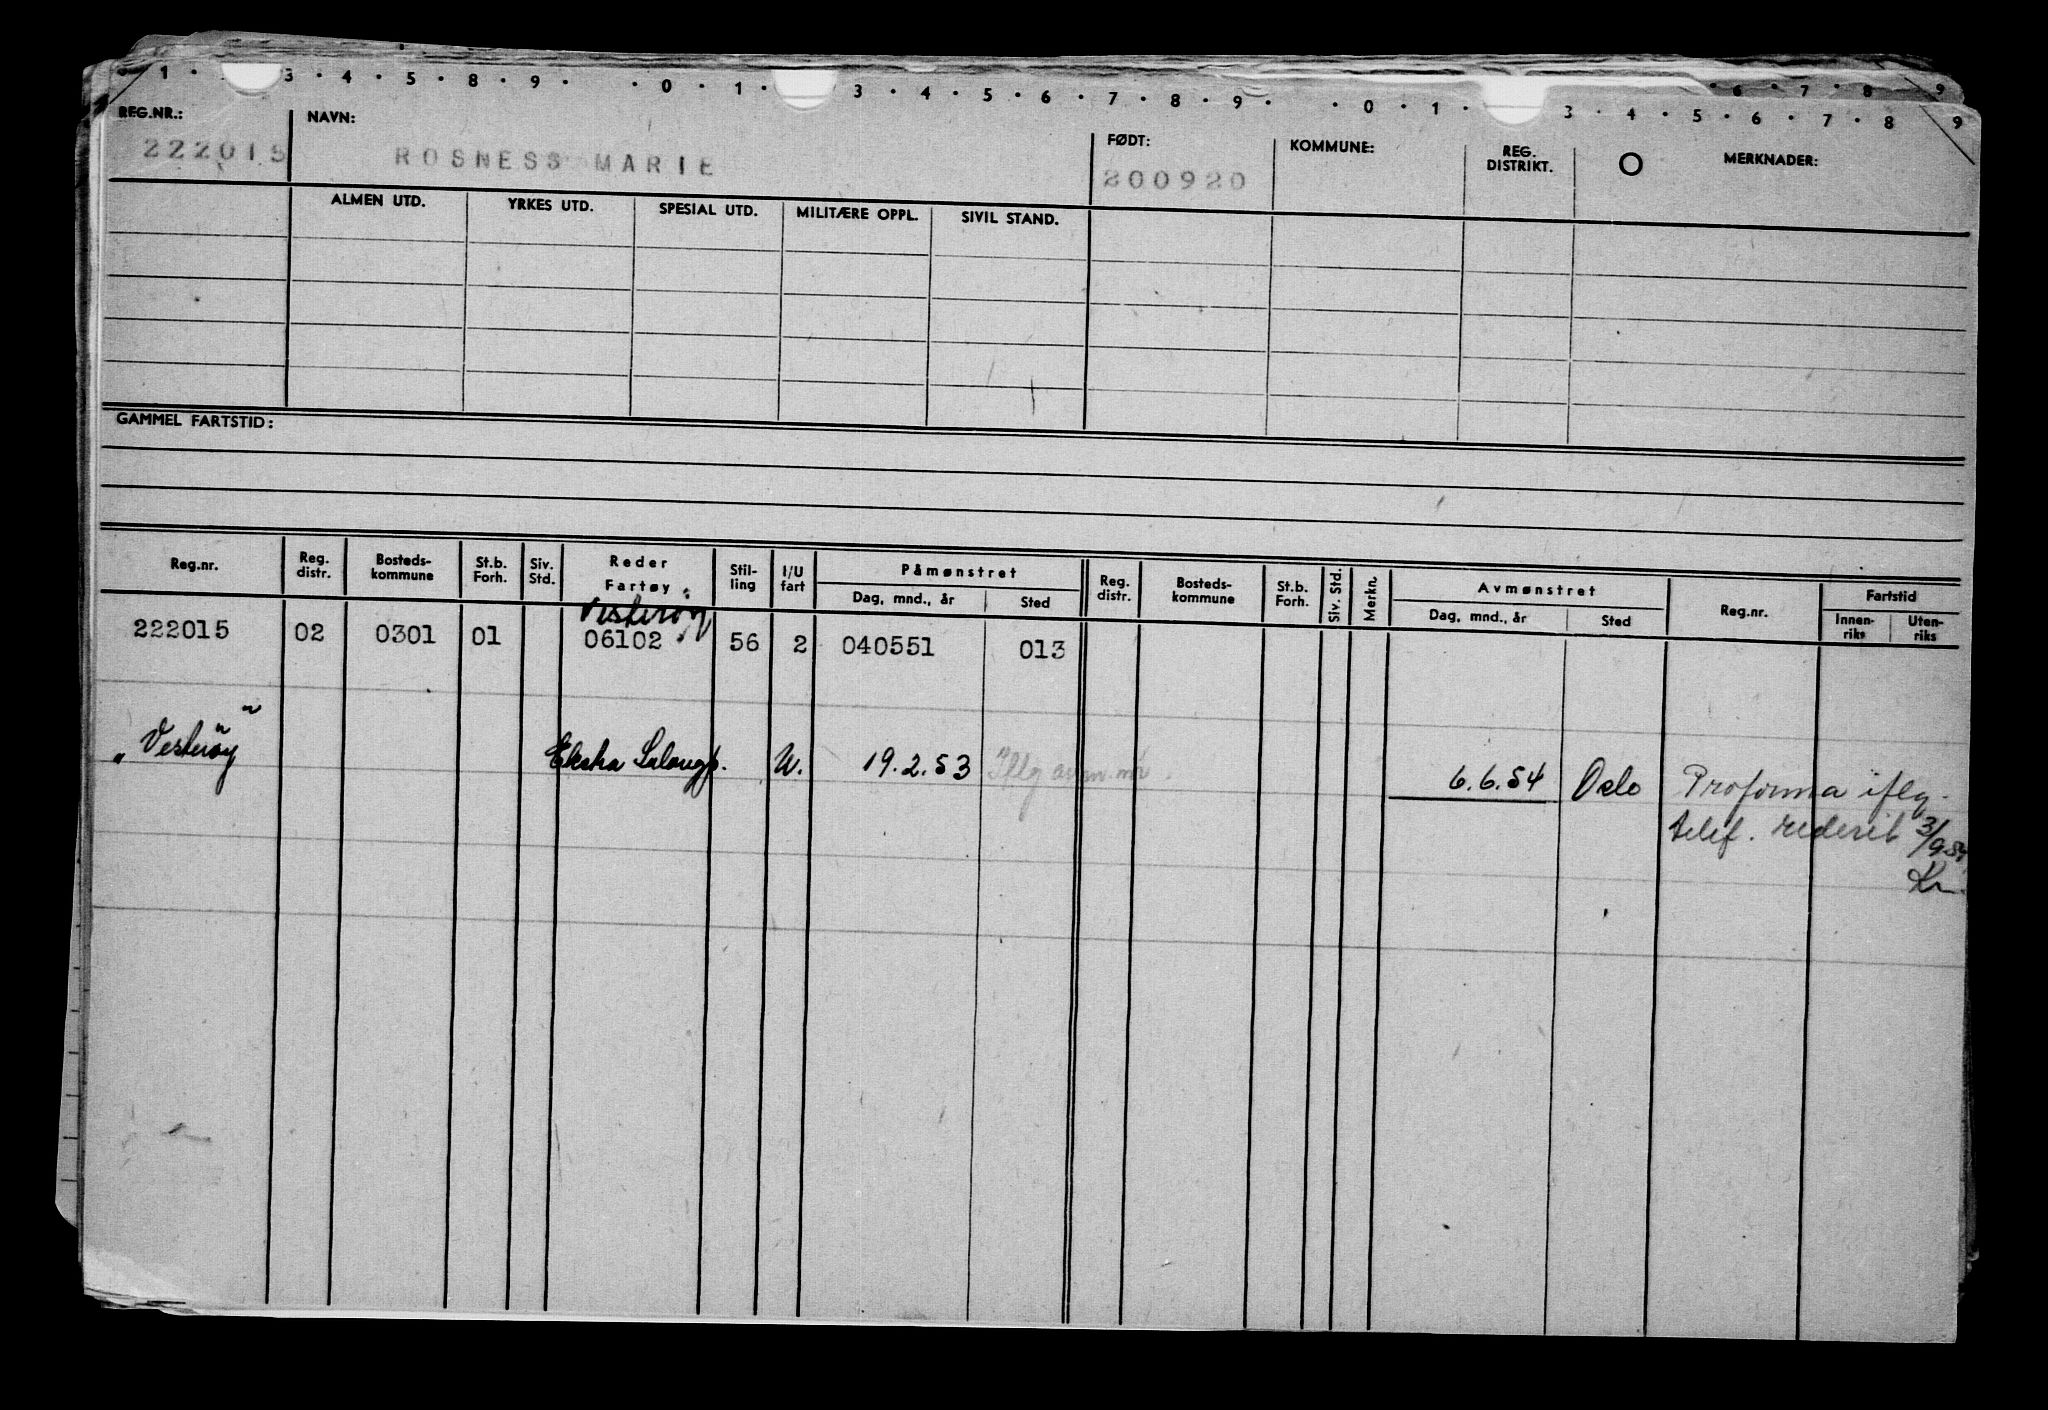 1 · · 3 · 4 · 5 · 8 · 9 · · 0 · 1 · 3 · 4 · 5 · 6 · 7 · 8 · 9 · · 0 · 1 · 3 · 4 · 5 · 6 · 7 · 8 9
REG.NR.: NAVN: FØDT: KOMMUNE: REG. DISTRIKT. MERKNADER:
222015 ROSNESS MARIE 200920
ALMEN UTD. YRKES UTD. SPESIAL UTD. MILITÆRE OPPL. SIVIL STAND.
GAMMEL FARTSTID:
Reg.nr. Reg. distr. Bosteds-kommune St.b. Forh. Siv. Std. Reder Fartøy Stil-ling I/U fart Påmønstret Dag, mnd., år Sted Reg. distr. Bosteds-kommune St.b. Forh. Siv. Std. Merkn. Avmønstret Dag, mnd., år Sted Reg.nr. Fartstid Innen-riks Uten-riks
Vesterøy
222015 02 0301 01 06102 56 2 040551 013
"Vesterøy" Ekstra Salongp. U. 19.2.53 Iflg avm. 6.6.54 Oslo Proforma iflg.
telef. rederit 3/9 54
Kr.